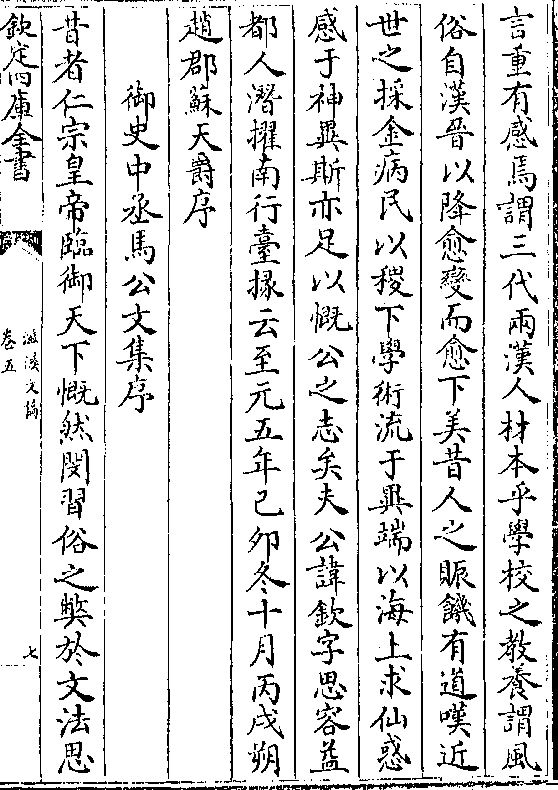 言重有感焉謂三代兩漢人材本乎學校之教養謂風
俗自漢晉以降愈變而愈下美昔人之賑饑有道嘆近
世之採金病民以稷下學術流于異端以海上求仙惑
感于神異斯亦足以慨公之志矣夫公諱欽字思容益
都人潛擢南行臺掾云至元五年己卯冬十月丙戌朔
趙郡蘇天爵序
御史中丞馬公文集序
昔者仁宗皇帝臨御天下慨然閔習俗之弊於文法思
欽定四庫全書
滋溪文稿
卷五
七